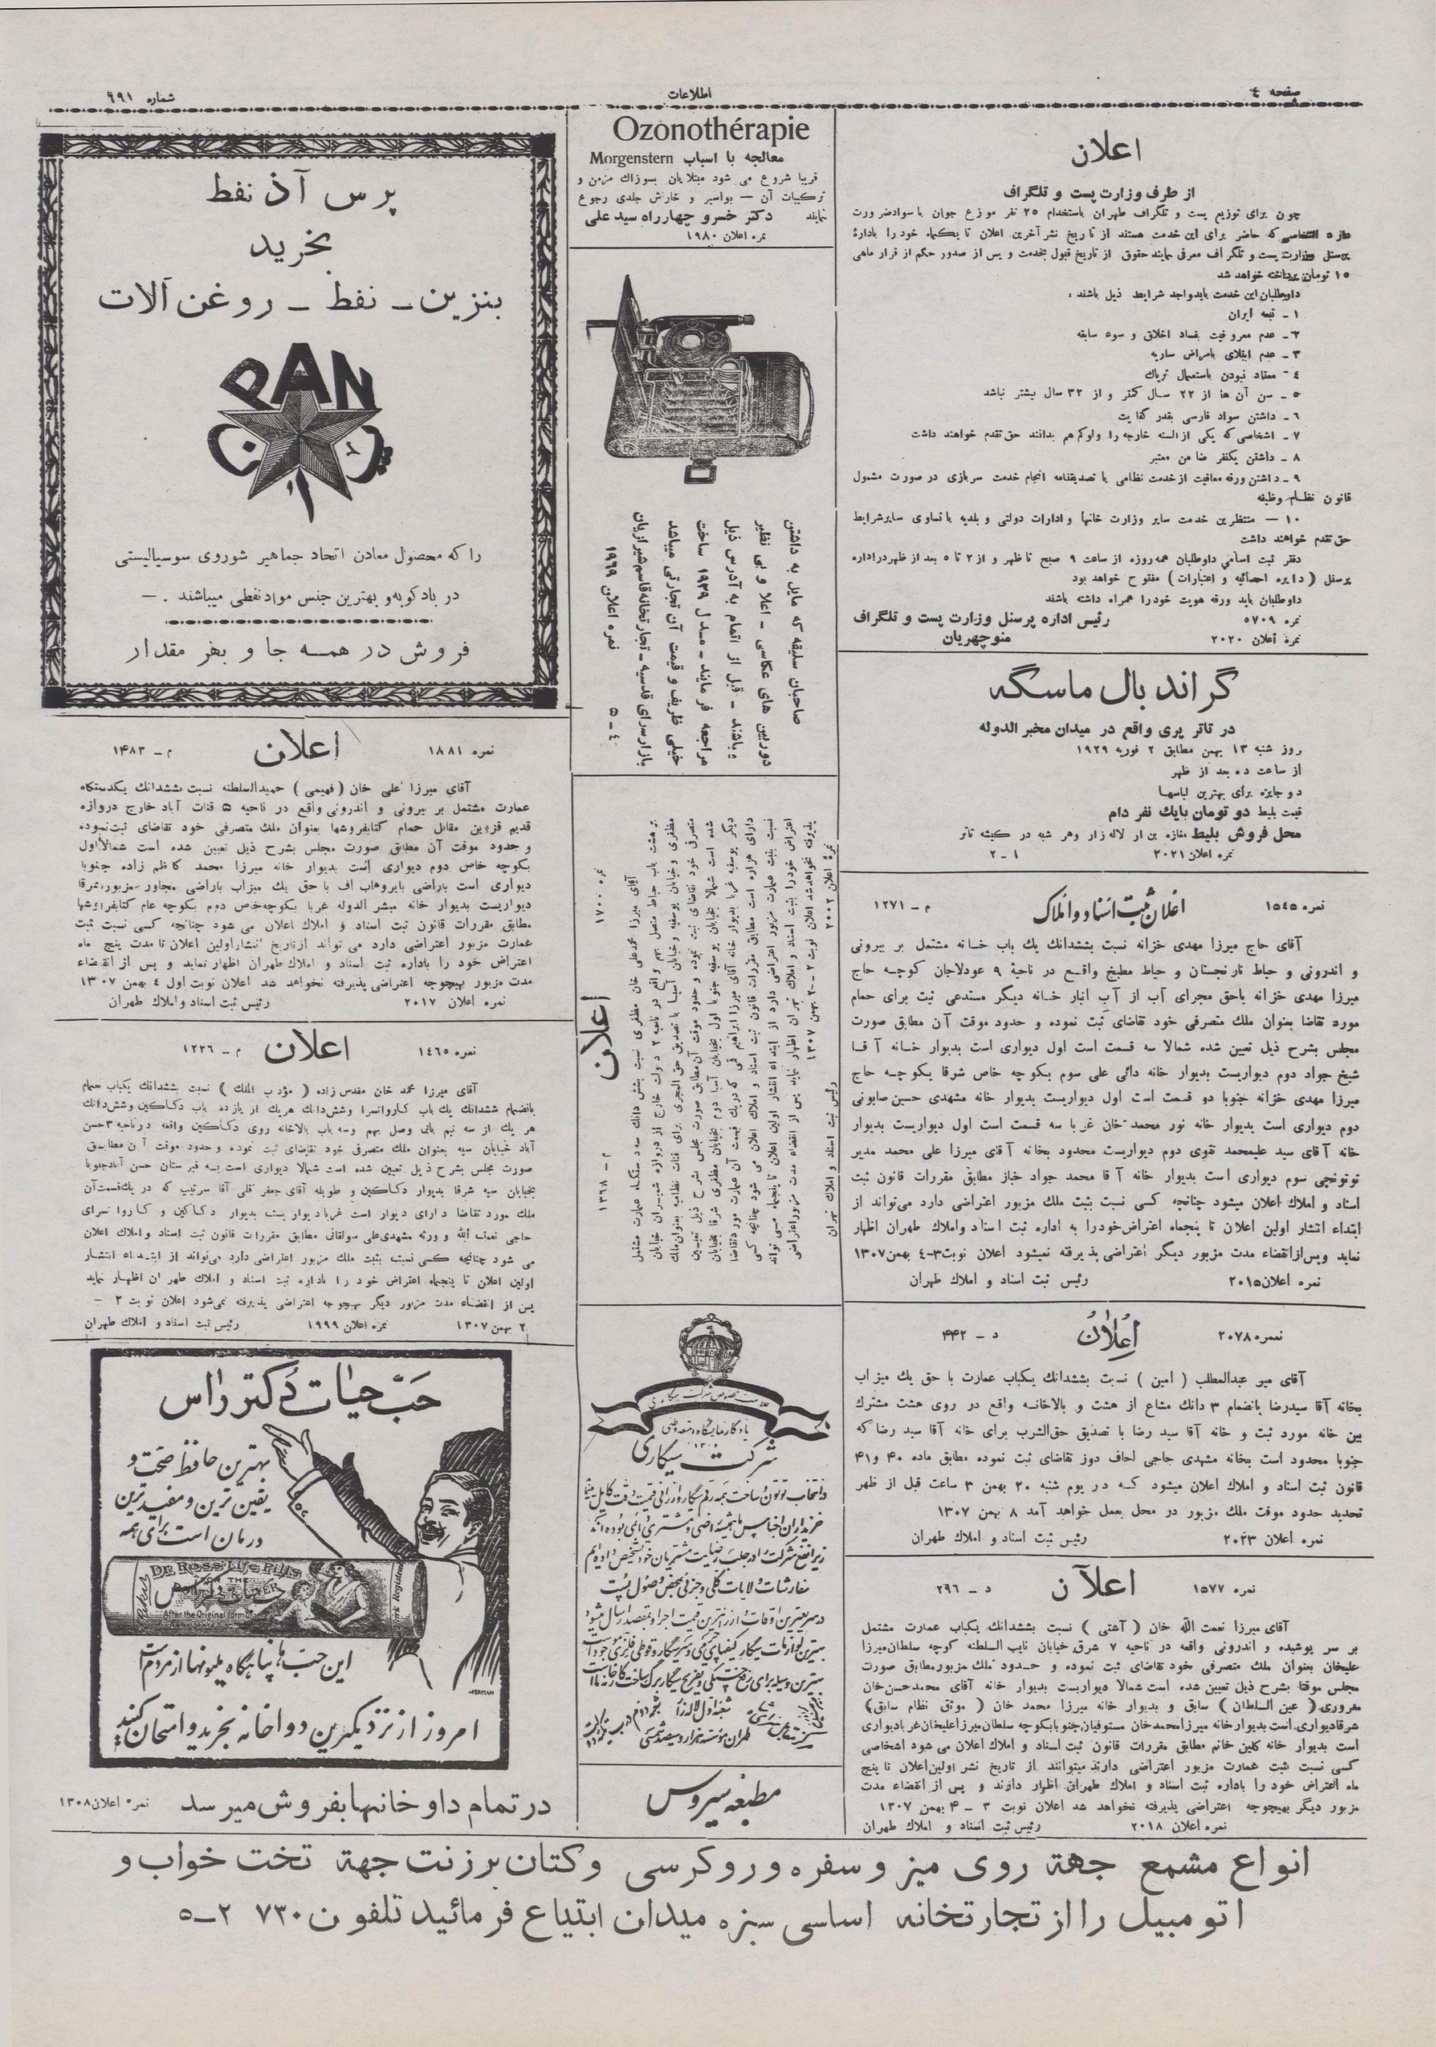 صفحه ٤
اطلاعات
شماره ٦٩١
اعلان
از طرف وزارت پست و تلگراف
چون برای توزیع پست و تلگراف طهران باستخدام ٢٥ نفر موزع جوان با سواد ضرورت
دارد اشخاصی که حاضر برای این خدمت هستند از تاریخ نشر آخرین اعلان تا یکماه خود را بادارهٔ
پرسنل وزارت پست و تلگراف معرفی نمایند حقوق از تاریخ قبول بخدمت و پس از صدور حکم از قرار ماهی
١٥ تومان پرداخته خواهد شد
داوطلبان این خدمت باید واجد شرایط ذیل باشند :
١ - تبعه ایران
٢ - عدم معروفیت بفساد اخلاق و سوء سابقه
٣ - عدم ابتلای بامراض ساریه
٤ - معتاد نبودن باستعمال تریاك
٥ - سن آن ها از ٢٢ سال کمتر و از ٣٢ سال بیشتر نباشد
٦ - داشتن سواد فارسی بقدر کفایت
٧ - اشخاصی که یکی از السنه خارجه را ولو کم هم بدانند حق تقدم خواهند داشت
٨ - داشتن یکنفر ضامن معتبر
٩ - داشتن ورقه معافیت از خدمت نظامی یا تصدیقنامه انجام خدمت سربازی در صورت مشمول
قانون نظام وظیفه
١٠ - منتظرین خدمت سایر وزارت خانها و ادارات دولتی و بلدیه با تساوی سایر شرایط
حق تقدم خواهند داشت
دفتر ثبت اسامی داوطلبان همه روزه از ساعت ٩ صبح تا ظهر و از ٢ تا ٥ بعد از ظهر در اداره
پرسنل ( دایره احصائیه و اعتبارات ) مفتوح خواهد بود
داوطلبان باید ورقه هویت خود را همراه داشته باشند
نمره ٥٧٠٩ رئیس اداره پرسنل وزارت پست و تلگراف
نمره اعلان ٢٠٢٠ منوچهریان
گراند بال ماسکه
در تاتر پری واقع در میدان مخبر الدوله
روز شنبه ١٣ بهمن مطابق ٢ فوریه ١٩٢٩
از ساعت ده بعد از ظهر
دو جایزه برای بهترین لباسها
قیمت بلیط دو تومان بایك نفر دام
محل فروش بلیط مغازه بن ار لاله زار وهر شبه در گیشه تاتر
نمره اعلان ٢٠٢١ ١ - ٢
نمره ١٥٤٥ اعلان ثبت اسناد و املاك م - ١٢٧١
آقای حاج میرزا مهدی خزانه نسبت بششدانك یك باب خانه مشتمل بر بیرونی
و اندرونی و حیاط نارنجستان و حیاط مطبخ واقع در ناحیهٔ ٩ عودلاجان کوچه حاج
میرزا مهدی خزانه باحق مجرای آب از آب انبار خانه دیگر مستدعی ثبت برای حمام
مورد تقاضا بعنوان ملك متصرفی خود تقاضای ثبت نموده و حدود موقت آن مطابق صورت
مجلس بشرح ذیل تعیین شده شمالا سه قسمت است اول دیواری است بدیوار خانه آقا
شیخ جواد دوم دیواریست بدیوار خانه دائی علی سوم بکوچه خاص شرقا بکوچه حاج
میرزا مهدی خزانه جنوبا دو قسمت است اول دیواریست بدیوار خانه مشهدی حسین صابونی
دوم دیواری است بدیوار خانه نور محمد خان غربا سه قسمت است اول دیواریست بدیوار
خانه آقای سید علیمحمد تقوی دوم دیواریست محدود بخانه آقای میرزا علی محمد مدیر
توتونچی سوم دیواری است بدیوار خانه آقا محمد جواد خباز مطابق مقررات قانون ثبت
اسناد و املاك اعلان میشود چنانچه کسی نسبت بثبت ملك مزبور اعتراضی دارد می‌تواند از
ابتداء انتشار اولین اعلان تا پنجماه اعتراض خود را به اداره ثبت اسناد و املاك طهران اظهار
نماید و پس از انقضاء مدت مزبور دیگر اعتراضی پذیرفته نمیشود اعلان نوبت ٣-٤ بهمن ١٣٠٧
نمره اعلان ٢٠١٥ رئیس ثبت اسناد و املاك طهران
نمره ٢٠٧٨ اعلان د - ٤٤٢
آقای میر عبدالمطلب ( امین ) نسبت بششدانك یکباب عمارت با حق یك میزاب
بخانه آقا سیدرضا بانضمام ٣ دانك مشاع از هشت و بالاخانه واقع در روی هشت مشترك
بین خانه مورد ثبت و خانه آقا سید رضا با تصدیق حق‌الشرب برای خانه آقا سید رضا که
جنوبا محدود است بخانه مشهدی حاجی لحاف دوز تقاضای ثبت نموده مطابق ماده ٤٠ و ٤١
قانون ثبت اسناد و املاك اعلان میشود که در یوم شنبه ٢٠ بهمن ٣ ساعت قبل از ظهر
تحدید حدود موقت ملك مزبور در محل بعمل خواهد آمد ٨ بهمن ١٣٠٧
نمره اعلان ٢٠٢٣ رئیس ثبت اسناد و املاك طهران
نمره ١٥٧٧ اعلان د - ٢٩٦
آقای میرزا نعمت الله خان ( آشتی ) نسبت بششدانك یکباب عمارت مشتمل
بر سر پوشیده و اندرونی واقعه در ناحیه ٧ شرق خیابان نایب السلطنه کوچه سلطان میرزا
علیخان بعنوان ملك متصرفی خود تقاضای ثبت نموده و حدود ملك مزبور مطابق صورت
مجلس موقتا بشرح ذیل تعیین شده است شمالا دیواریست بدیوار خانه آقای محمد حسن خان
( عین السلطان ) سابق و بدیوار خانه میرزا محمد خان ( موثق نظام سابق )
شرقا دیواری است بدیوار خانه میرزا محمد خان مستوفیان جنوبا بکوچه سلطان میرزا علیخان غربا دیواری
است بدیوار خانه گلین خانم مطابق مقررات قانون ثبت اسناد و املاك اعلان می شود اشخاصی
کسی نسبت ثبت عمارت مزبور اعتراضی دارند میتوانند از تاریخ نشر اولین اعلان تا پنج
ماه اعتراض خود را باداره ثبت اسناد و املاك طهران اظهار دارند و پس از انقضاء مدت
مزبور دیگر بهیچوجه اعتراضی پذیرفته نخواهد شد اعلان نوبت ٣ - ٤ بهمن ١٣٠٧
نمره اعلان ٢٠١٨ رئیس ثبت اسناد و املاك طهران
Ozonothérapie
معالجه با اسباب Morgenstern
قریبا شروع می شود مبتلایان بسوزاك مزمن و
ترکیبات آن - بواسیر و خارش جلدی رجوع
نمایند دکتر خسرو چهارراه سید علی
نمره اعلان ١٩٨٠
صاحبان سلیقه که مایل به داشتن
دوربین های عکاسی - اعلا و بی نظیر
باشند - قبل از اتمام به آدرس ذیل
مراجعه فرمایند - مدل ١٩٢٩ ساخت
خیلی ظریف و قیمت آن تجارتی میباشد
بازار سرای قدسیه - تجارتخانه قاسم شیرازیان
نمره اعلان ١٩٦٩ ٤ - ٥
نمره ١٧٠٠ اعلان م - ١٣٩٨
آقای میرزا محمد علی خان مظفری نسبت بشش دانك سه دستگاه عمارت مشتمل
بر هشت باب حیاط متصل بهم واقع در ناحیه ٢ دولت خارج از دروازه شمیران خیابان
مظفری و خیابان یوسفیه و خیابان آسیا با تصدیق حق المجری برای قنات نظامیه بعنوان ملك
متصرفی خود تقاضای ثبت نموده و حدود موقت آن مطابق صورت مجلس بشرح ذیل تعیین
شده است شمالا بخیابان یوسفیه جنوبا اول بخیابان آسیا دوم بخیابان مظفری شرقا بخیابان
دیگر یوسفیه غربا بدیوار خانه آقای میرزا ابراهیم قمی که در یك قسمت آن عمارت مورد تقاضا
دارای هزاره است مطابق مقررات قانون ثبت اسناد و املاك اعلان می شود چنانچه کسی
نسبت بثبت عمارت مزبور اعتراضی دارد از ابتداء انتشار اولین اعلان تا پنجماه می تواند
اعتراض خود را بثبت اسناد و املاك طهران اظهار نماید پس از انقضاء مدت مزبور اعتراضی
پذیرفته نخواهد شد اعلان نوبت ٢ - ٢ بهمن ١٣٠٧
نمرهٔ اعلان ٢٠٠٢ رئیس ثبت اسناد و املاك طهران
علامت مخصوص شرکت سیگاری
شرکت سیگاری
مطبعه سیروس
پرس آذ نفط
بخرید
بنزین - نفط - روغن آلات
PAN
پرس آ
را که محصول معادن اتحاد جماهیر شوروی سوسیالیستی
در بادکوبه و بهترین جنس مواد نفطی میباشند . -
فروش در همه جا و بهر مقدار
نمره ١٨٨١ اعلان م - ١٤٨٣
آقای میرزا علی خان ( فهیمی ) حمیدالسلطنه نسبت بششدانك یکدستگاه
عمارت مشتمل بر بیرونی و اندرونی واقع در ناحیه ٥ قنات آباد خارج دروازه
قدیم قزوین مقابل حمام کتابفروشها بعنوان ملك متصرفی خود تقاضای ثبت نموده
و حدود موقت آن مطابق صورت مجلس بشرح ذیل تعیین شده است شمالا اول
بکوچه خاص دوم دیواری است بدیوار خانه میرزا محمد کاظم زاده جنوبا
دیواری است باراضی بایر وهاب اف با حق یك میزاب باراضی مجاور مزبور شرقا
دیواریست بدیوار خانه مبشر الدوله غربا بکوچه خاص دوم بکوچه عام کتابفروشها
مطابق مقررات قانون ثبت اسناد و املاك اعلان می شود چنانچه کسی نسبت ثبت
عمارت مزبور اعتراضی دارد می تواند از تاریخ انتشار اولین اعلان تا مدت پنج ماه
اعتراض خود را باداره ثبت اسناد و املاك طهران اظهار نماید و پس از انقضاء
مدت مزبور بهیچوجه اعتراضی پذیرفته نخواهد شد اعلان نوبت اول ٤ بهمن ١٣٠٧
نمره اعلان ٢٠١٧ رئیس ثبت اسناد و املاك طهران
نمره ١٤٦٥ اعلان م - ١٢٢٦
آقای میرزا محمد خان مقدس زاده ( مؤدب الملك ) نسبت بششدانك یکباب حمام
بانضمام ششدانك یك باب کاروانسرا وشش‌دانك هریك از یازده باب دکاکین وشش‌دانك
هر یك از سه نیم بابی وصل بهم وسه باب بالاخانه روی دکاکین واقعه در ناحیه ٣ حسن
آباد خیابان سپه بعنوان ملك متصرفی خود تقاضای ثبت نموده و حدود موقت آن مطابق
صورت مجلس بشرح ذیل تعیین شده است شمالا دیواری است بسه قبرستان حسن آباد جنوبا
بخیابان سپه شرقا بدیوار دکاکین و طویله آقای جعفر قلی آقا سرتیپ که در یك قسمت آن
ملك مورد تقاضا دارای دیوار است غربا دیواریست بدیوار دکاکین و کاروانسرای
حاجی نعمت الله و ورثه مشهدی علی سولقانی مطابق مقررات قانون ثبت اسناد و املاك اعلان
می شود چنانچه کسی نسبت بثبت ملك مزبور اعتراضی دارد می‌تواند از ابتداء انتشار
اولین اعلان تا پنجماه اعتراض خود را باداره ثبت اسناد و املاك طهران اظهار نماید
پس از انقضاء مدت مزبور دیگر بهیچوجه اعتراضی پذیرفته نمی‌شود اعلان نوبت ٢ -
٢ بهمن ١٣٠٧ نمره اعلان ١٩٩٩ رئیس ثبت اسناد و املاك طهران
حبّ حیات دکتر راس
بهترین حافظ صحت و
یقین ترین و مفیدترین
درمان است برای همه
Dr. Ross Life Pills
FOR THE
After the Original formula
این حب‌ها پناهگاه ملیونها از مردم است
امروز از نزدیکترین دواخانه بخرید و امتحان کنید
در تمام داوخانها بفروش میرسد نمره اعلان ١٣٠٨
انواع مشمع جهة روی میز و سفره و روکرسی و کتان برزنت جهة تخت خواب و
اتومبیل را از تجارتخانه اساسی سبزه میدان ابتیاع فرمائید تلفون ٧٣٠ ٢-٥